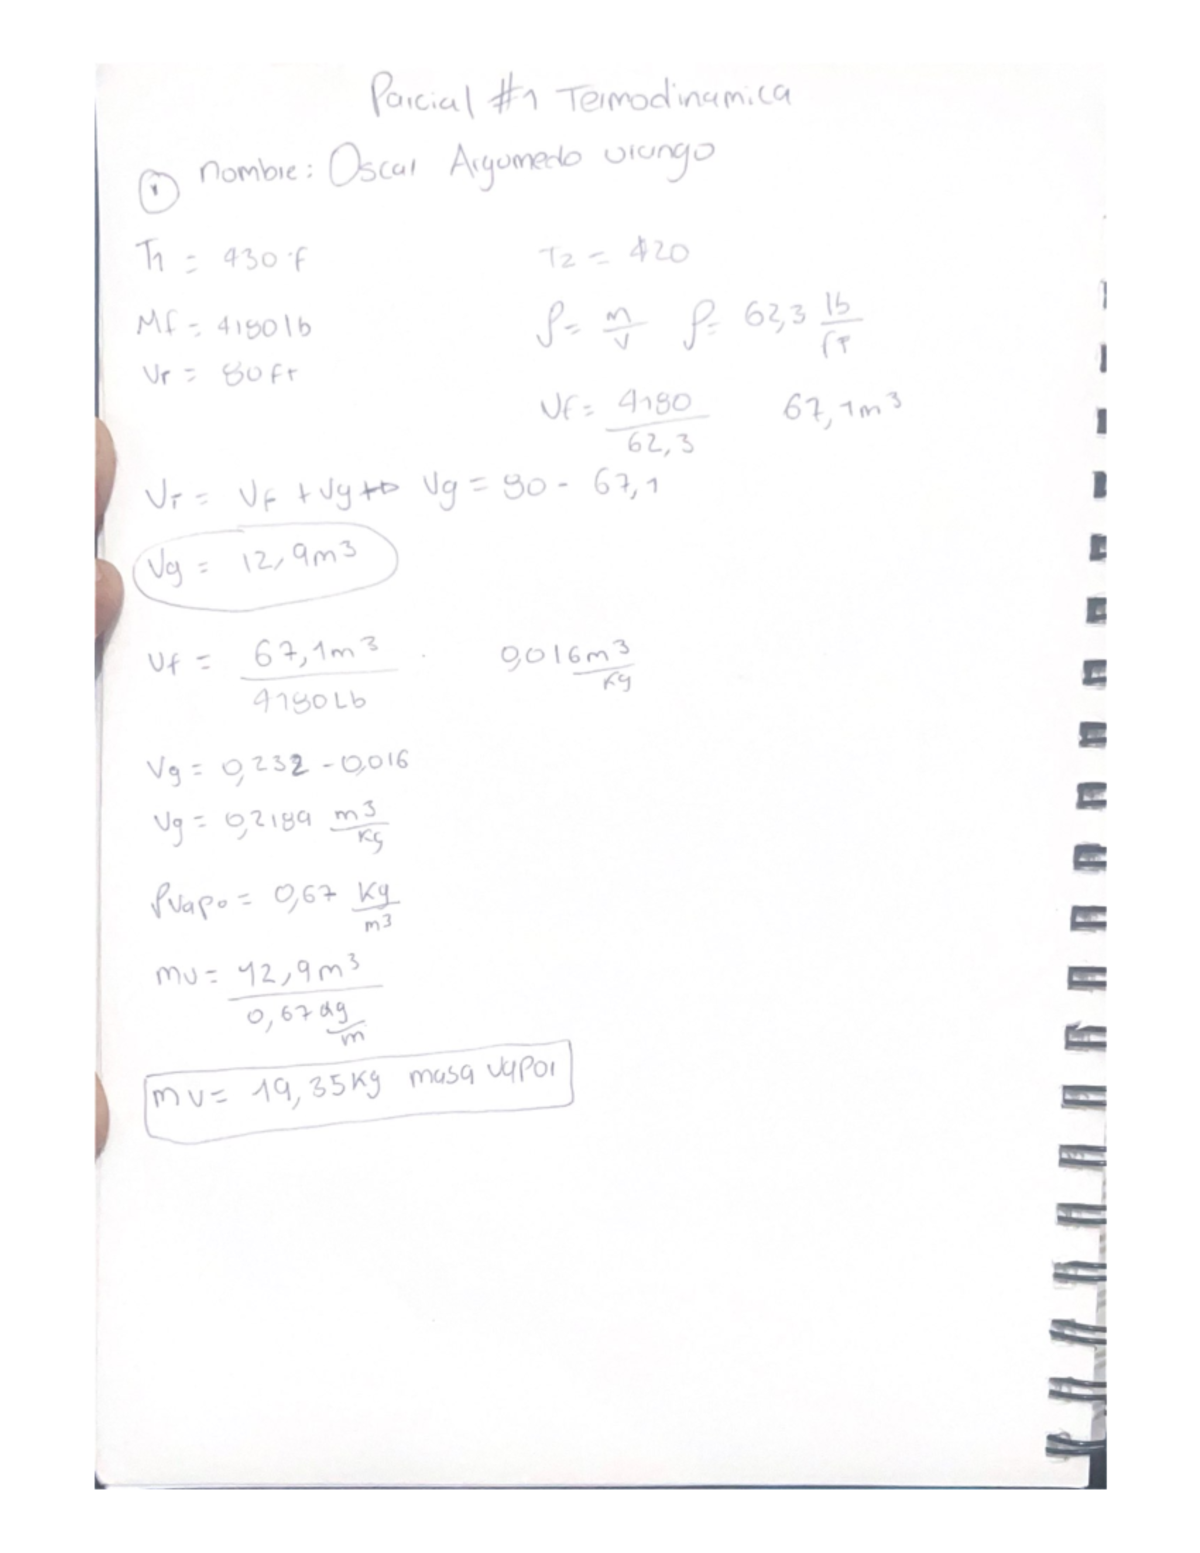 Parcial #1 Termodinamica
① nombre: Oscar Argumedo urango
T1 = 430 °F
T2 = 420
Mf = 4180 lb
ρ = m/v ρ = 62,3 lb/ft
Vr = 80 ft
Vf = 4180/62,3 67,1m³
Vr = Vf + Vg → Vg = 80 - 67,1
Vg = 12,9m³
Vf = 67,1m³/4180Lb 0,016 m³/Kg
Vg = 0,232 - 0,016
Vg = 0,2189 m³/Kg
ρvapo = 0,67 Kg/m³
mv = 12,9m³/0,67 Kg/m
mv = 19,35Kg masa vapor